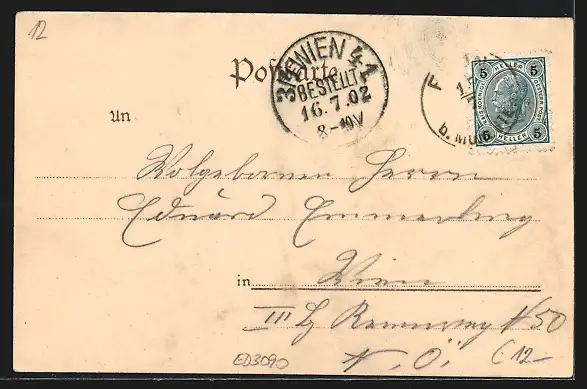 12
Postkarte
3/1 WIEN 4 1
BESTELLT
16.7.02
8-10V
5 HELLER 5
5 HELLER 5
An
Wolgebornen Herrn
Eduard Emmerling
in Wien
III Lg Rennweg № 50
N. Ö.
ED3090
C12-